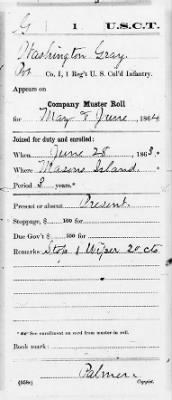 G | 1 | U.S.C.T.
Washington Gray
Pvt, Co. I, 1 Reg't U. S. Col'd Infantry.
Appears on
Company Muster Roll
for May & June, 1864
Joined for duty and enrolled:
When June 28, 1863.*
Where Masons Island.
Period 3 years.*
Present or absent Present.
Stoppage, $ 100 for
Due Gov't $ 100 for
Remarks: Stop 1 Wiper 20 cts
*See enrollment on card from muster-in roll.
Book mark:
Palmer
(358c) Copyist.